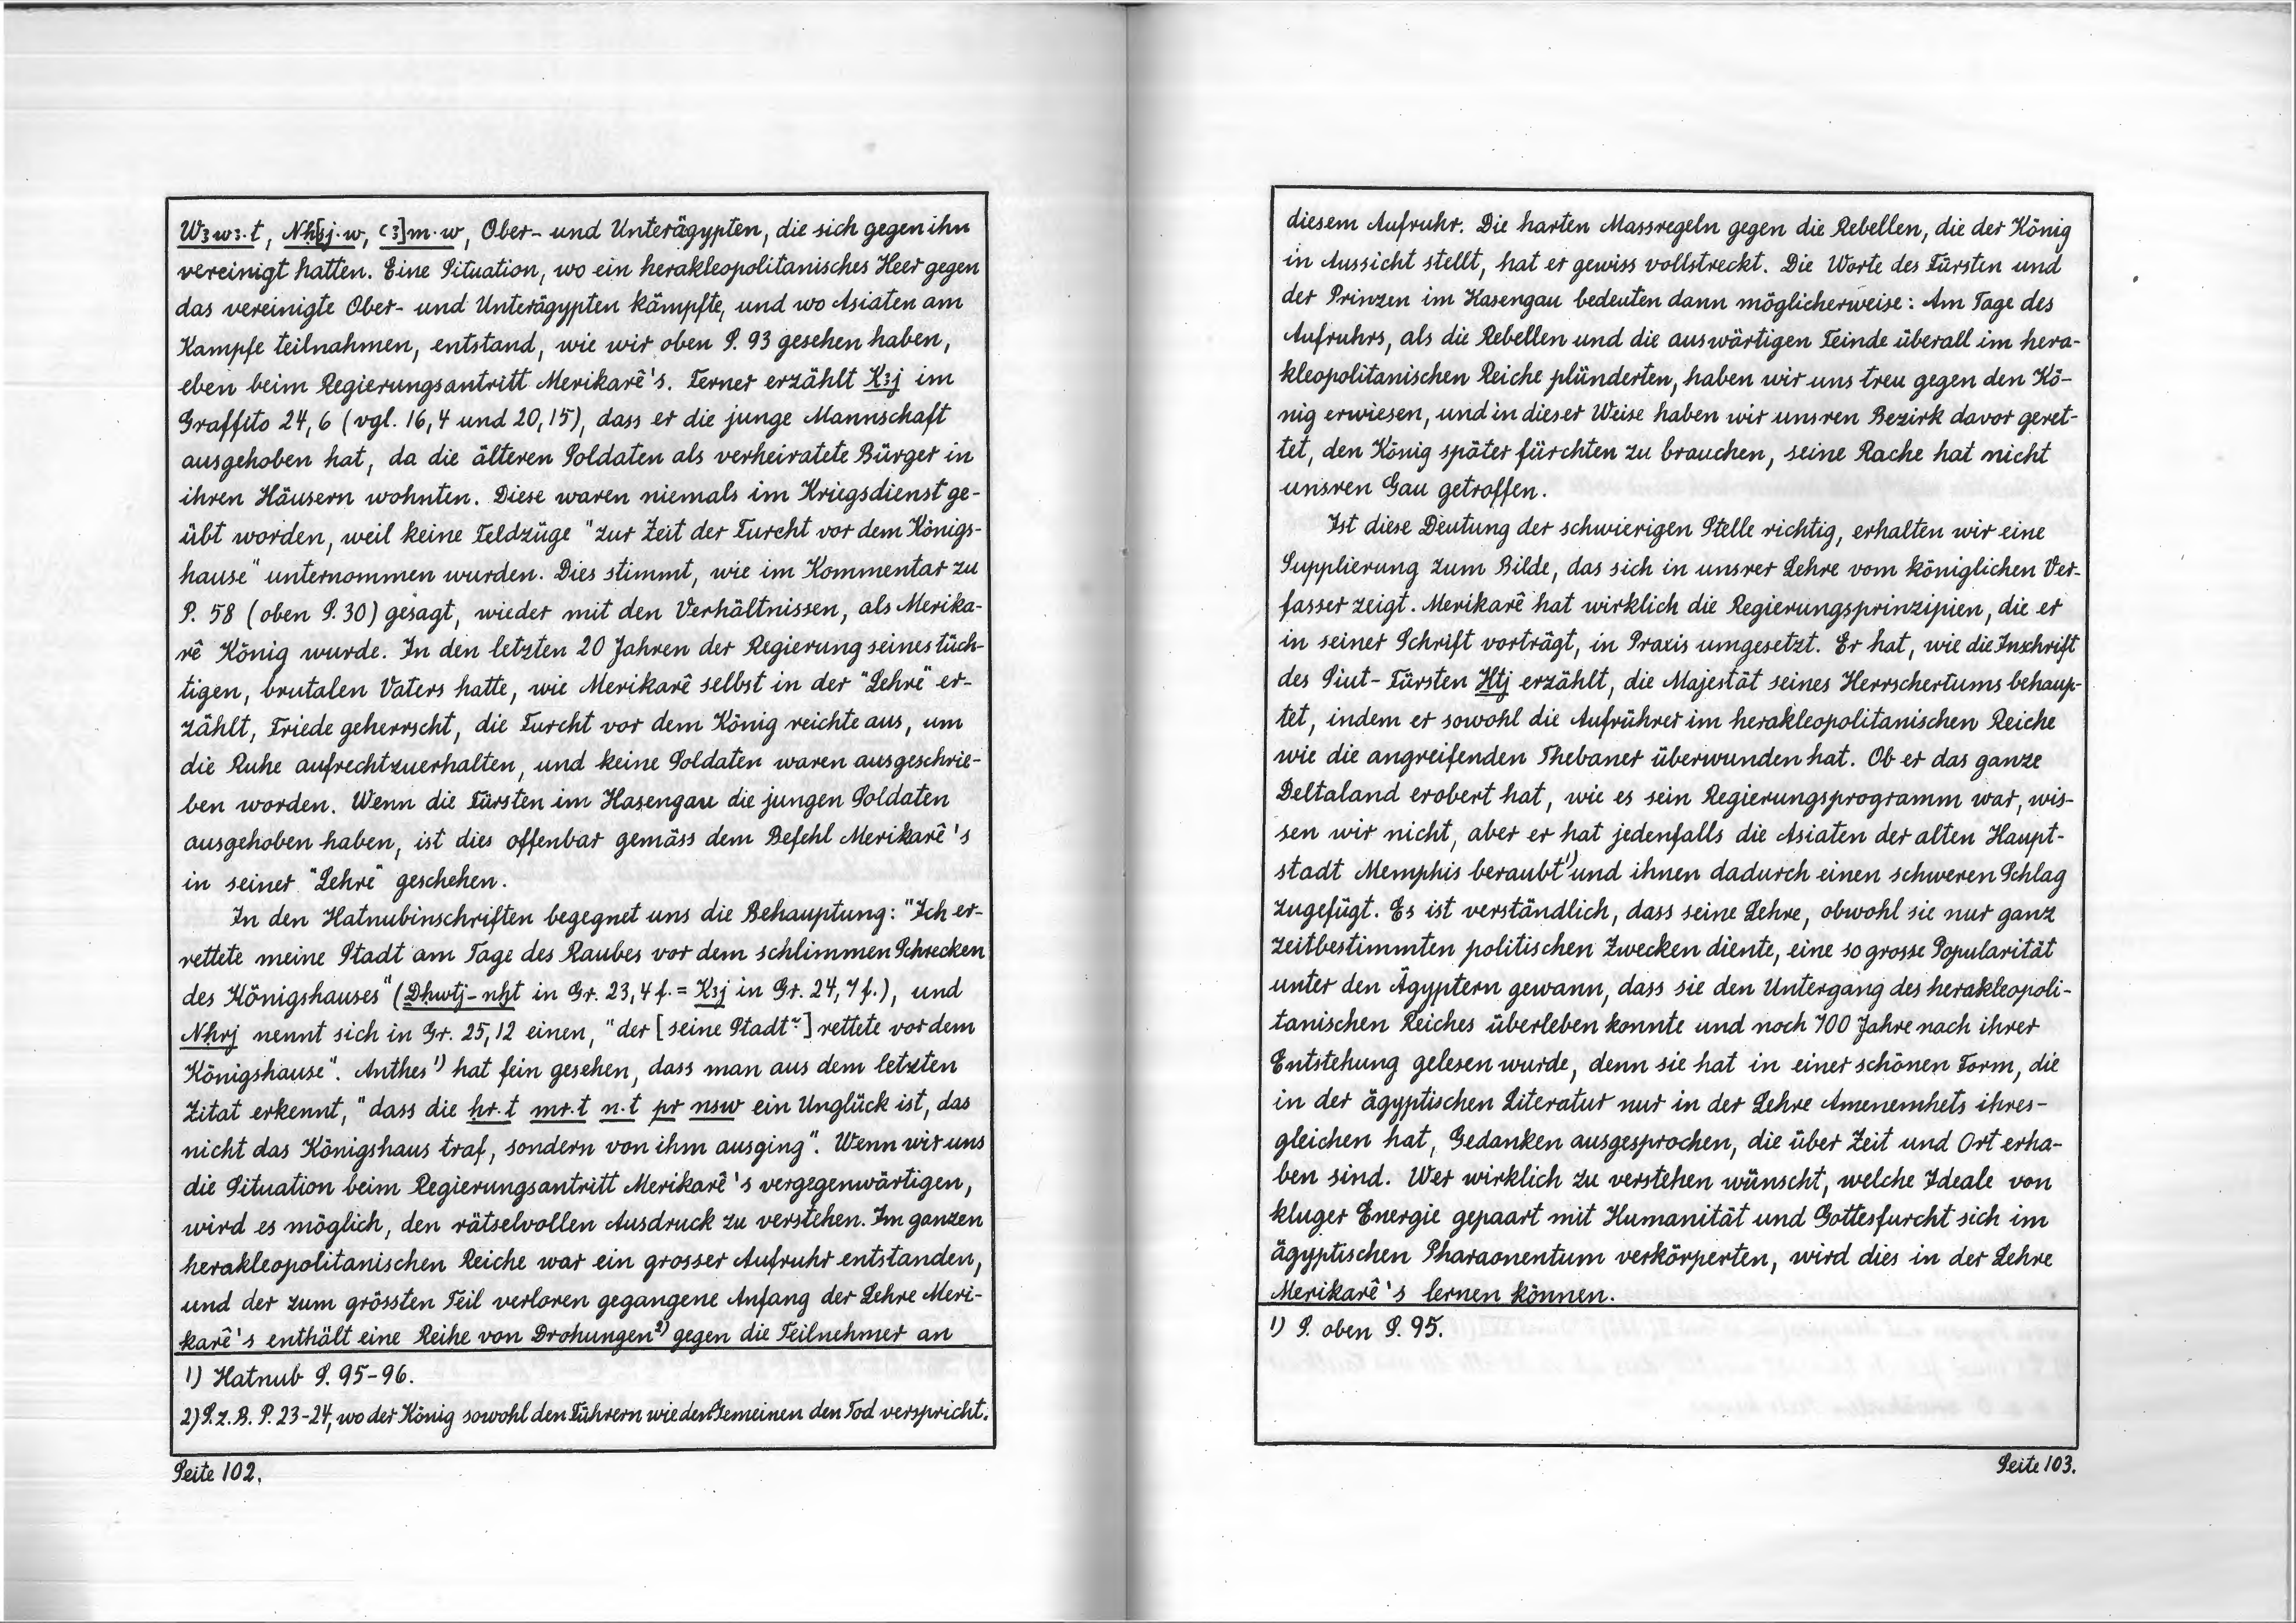 Wꜣwꜣ·t, Nḥ[sj·w, ꜥꜣ]m·w, Ober- und Unterägypten, die sich gegen ihn
vereinigt hatten. Eine Situation, wo ein herakleopolitanisches Heer gegen
das vereinigte Ober- und Unterägypten kämpfte, und wo Asiaten am
Kampfe teilnahmen, entstand, wie wir oben S. 93 gesehen haben,
eben beim Regierungsantritt Merikarê's. Ferner erzählt Kꜣj im
Graffito 24,6 (vgl. 16,4 und 20,15), dass er die junge Mannschaft
ausgehoben hat, da die älteren Soldaten als verheiratete Bürger in
ihren Häusern wohnten. Diese waren niemals im Kriegsdienst ge-
übt worden, weil keine Feldzüge "zur Zeit der Furcht vor dem Königs-
hause" unternommen wurden. Dies stimmt, wie im Kommentar zu
P. 58 (oben S. 30) gesagt, wieder mit den Verhältnissen, als Merika-
rê König wurde. In den letzten 20 Jahren der Regierung seines tüch-
tigen, brutalen Vaters hatte, wie Merikarê selbst in der "Lehre" er-
zählt, Friede geherrscht, die Furcht vor dem König reichte aus, um
die Ruhe aufrechtzuerhalten, und keine Soldaten waren ausgeschrie-
ben worden. Wenn die Fürsten im Hasengau die jungen Soldaten
ausgehoben haben, ist dies offenbar gemäss dem Befehl Merikarê's
in seiner "Lehre" geschehen.
In den Hatnubinschriften begegnet uns die Behauptung: "Ich er-
rettete meine Stadt am Tage des Raubes vor dem schlimmen Schrecken
des Königshauses" (Ḏḥwtj-nḫt in Gr. 23,4 f. = Kꜣj in Gr. 24,7 f.), und
Nḥrj nennt sich in Gr. 25,12 einen, "der [seine Stadt~] rettete vor dem
Königshause". Anthes 1) hat fein gesehen, dass man aus dem letzten
Zitat erkennt, "dass die ḥr·t mr·t n·t pr nsw ein Unglück ist, das
nicht das Königshaus traf, sondern von ihm ausging". Wenn wir uns
die Situation beim Regierungsantritt Merikarê's vergegenwärtigen,
wird es möglich, den rätselvollen Ausdruck zu verstehen. Im ganzen
herakleopolitanischen Reiche war ein grosser Aufruhr entstanden,
und der zum grössten Teil verloren gegangene Anfang der Lehre Meri-
karê's enthält eine Reihe von Drohungen 2) gegen die Teilnehmer an
1) Hatnub S. 95-96.
2) S. z. B. P. 23-24, wo der König sowohl den Führern wie den Gemeinen den Tod verspricht.
Seite 102.
diesem Aufruhr. Die harten Massregeln gegen die Rebellen, die der König
in Aussicht stellt, hat er gewiss vollstreckt. Die Worte des Fürsten und
der Prinzen im Hasengau bedeuten dann möglicherweise: Am Tage des
Aufruhrs, als die Rebellen und die auswärtigen Feinde überall im hera-
kleopolitanischen Reiche plünderten, haben wir uns treu gegen den Kö-
nig erwiesen, und in dieser Weise haben wir unsren Bezirk davor geret-
tet, den König später fürchten zu brauchen, seine Rache hat nicht
unsren Gau getroffen.
Ist diese Deutung der schwierigen Stelle richtig, erhalten wir eine
Supplierung zum Bilde, das sich in unsrer Lehre vom königlichen Ver-
fasser zeigt. Merikarê hat wirklich die Regierungsprinzipien, die er
in seiner Schrift vorträgt, in Praxis umgesetzt. Er hat, wie die Inschrift
des Siut-Fürsten Ḫtj erzählt, die Majestät seines Herrschertums behaup-
tet, indem er sowohl die Aufrührer im herakleopolitanischen Reiche
wie die angreifenden Thebaner überwunden hat. Ob er das ganze
Deltaland erobert hat, wie es sein Regierungsprogramm war, wis-
sen wir nicht, aber er hat jedenfalls die Asiaten der alten Haupt-
stadt Memphis beraubt 1) und ihnen dadurch einen schweren Schlag
zugefügt. Es ist verständlich, dass seine Lehre, obwohl sie nur ganz
zeitbestimmten politischen Zwecken diente, eine so grosse Popularität
unter den Ägyptern gewann, dass sie den Untergang des herakleopoli-
tanischen Reiches überleben konnte und noch 700 Jahre nach ihrer
Entstehung gelesen wurde, denn sie hat in einer schönen Form, die
in der ägyptischen Literatur nur in der Lehre Amenemhets ihres-
gleichen hat, Gedanken ausgesprochen, die über Zeit und Ort erha-
ben sind. Wer wirklich zu verstehen wünscht, welche Ideale von
kluger Energie gepaart mit Humanität und Gottesfurcht sich im
ägyptischen Pharaonentum verkörperten, wird dies in der Lehre
Merikarê's lernen können.
1) S. oben S. 95.
Seite 103.